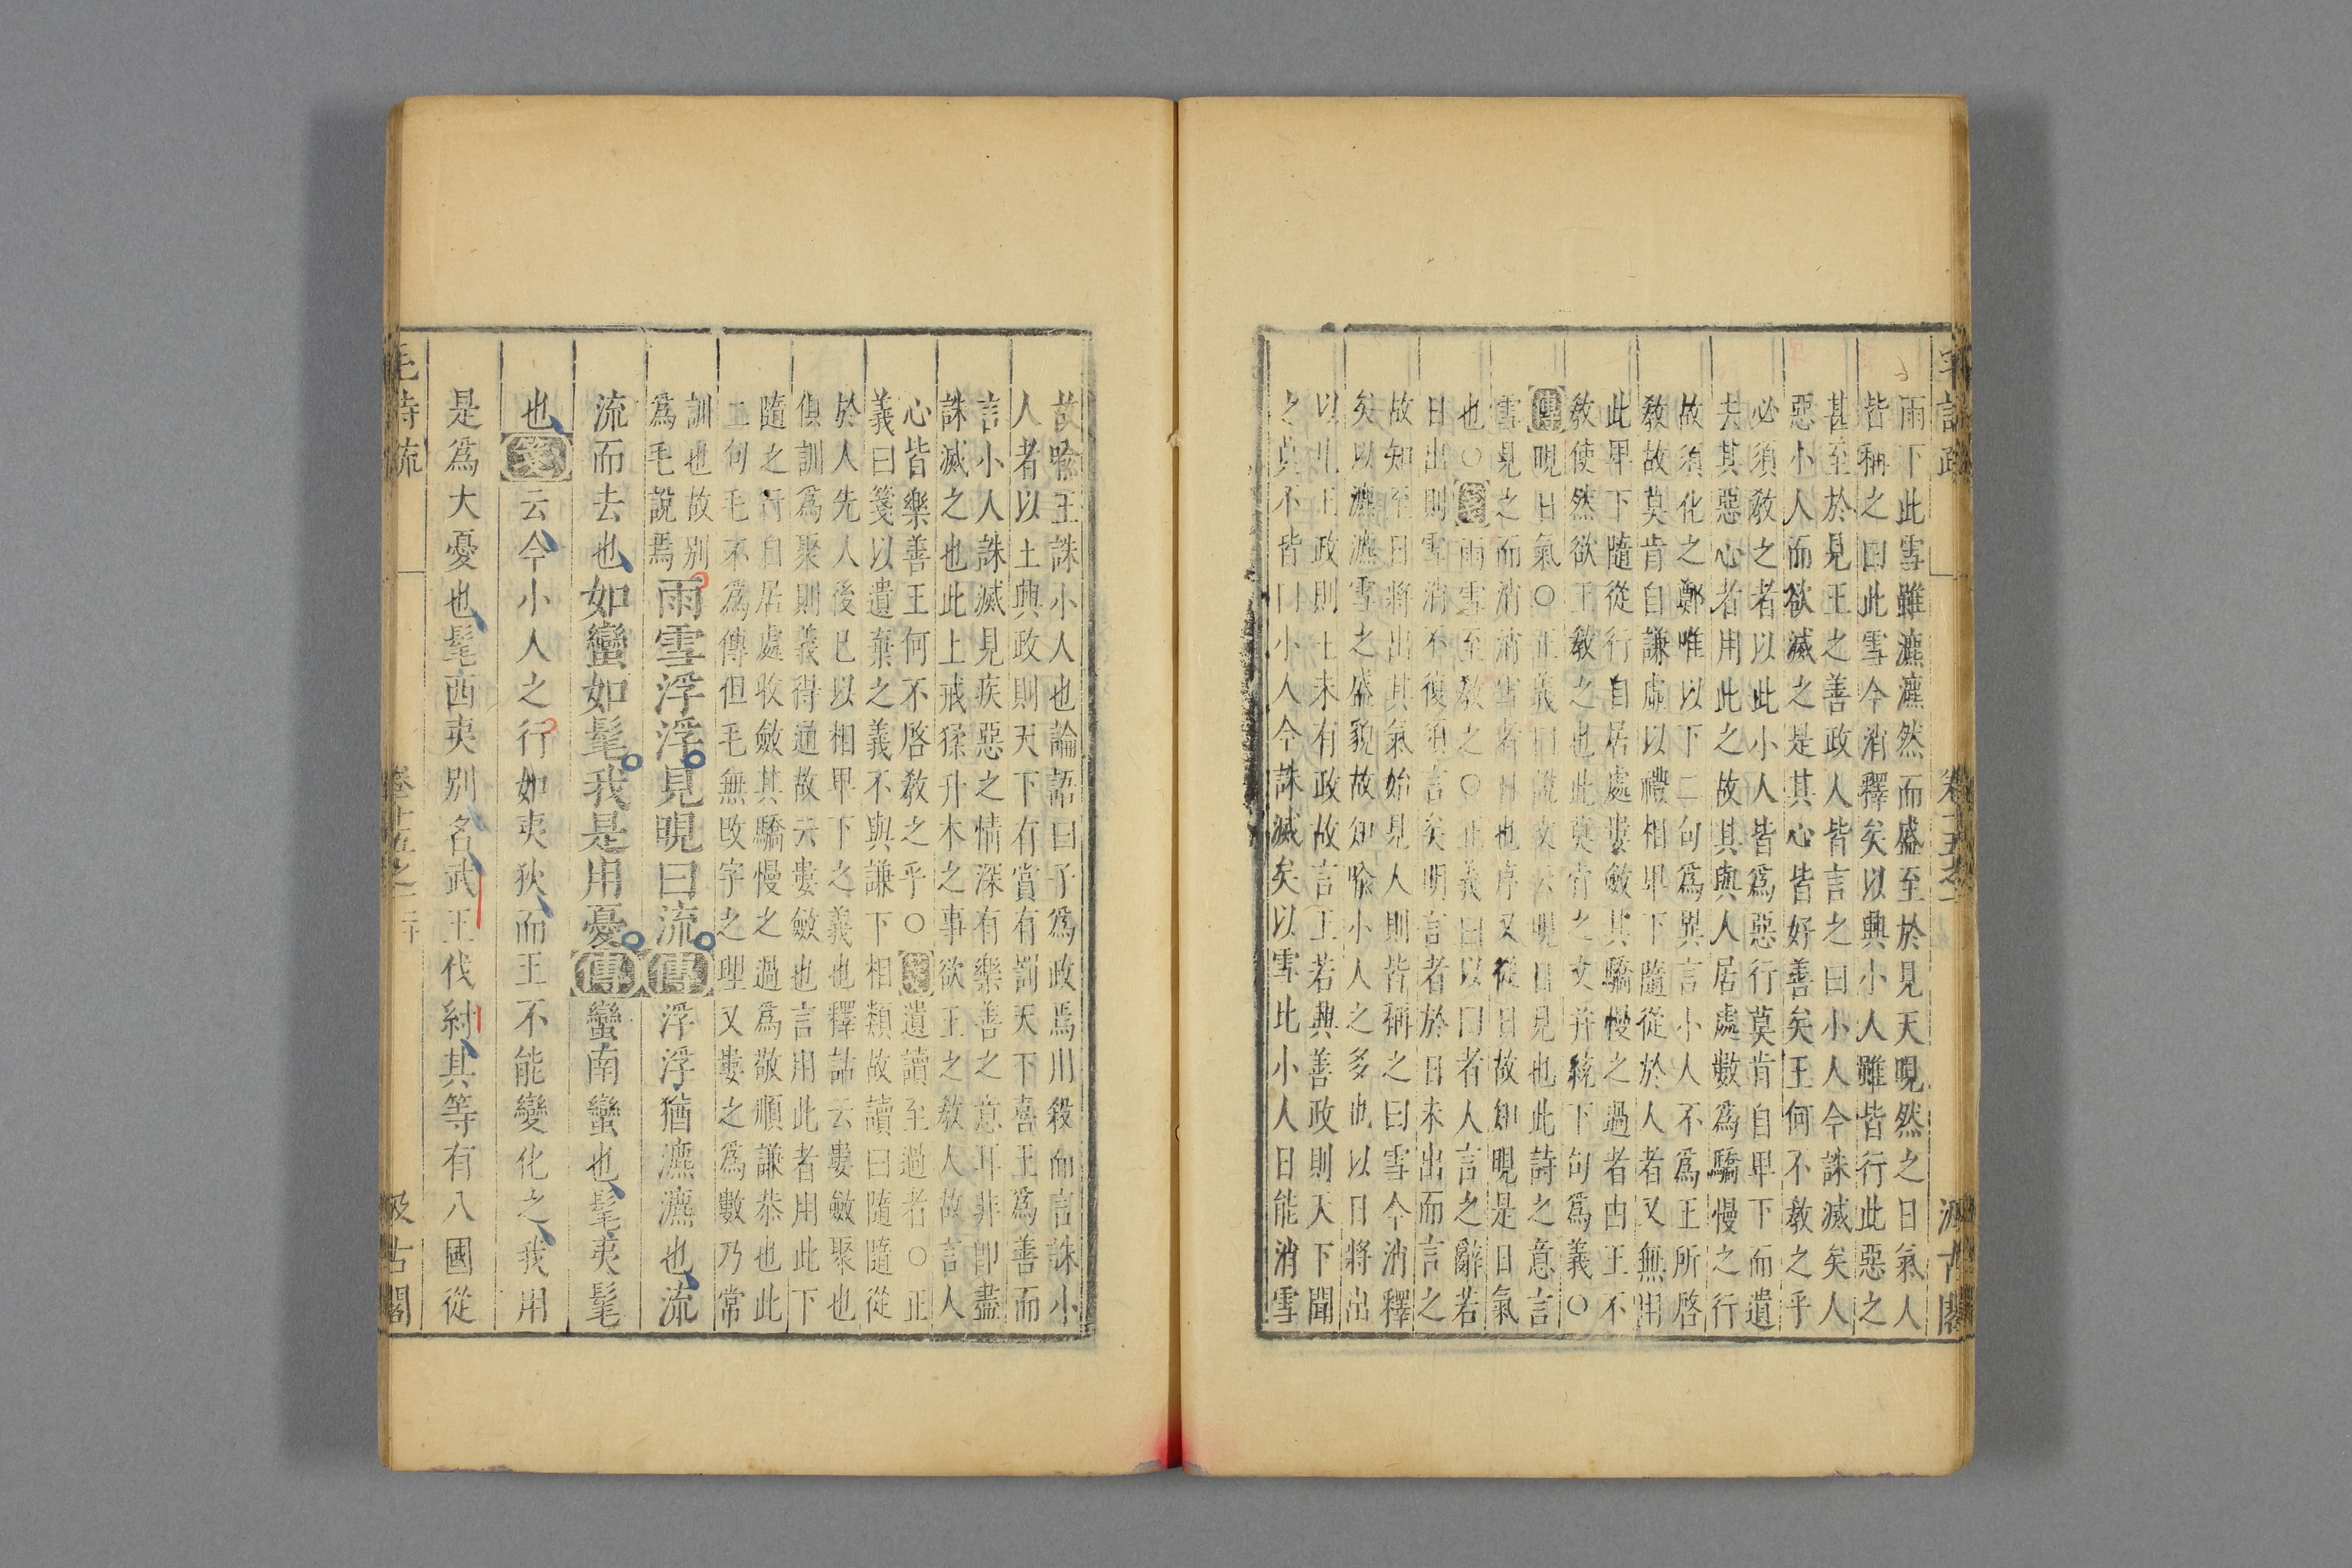 雨下此雪雖瀌瀌然而盛至於見天晛然之日氣人
皆稱之曰此雪今消釋矣以興小人雖皆行此惡之
甚至於見王之善政人皆言之曰小人今誅滅矣人
惡小人而欲滅之是其心皆好善矣王何不教之乎
必須教之者以此小人皆爲惡行莫肯自卑下而遺
去其惡心者用此之故其與人居處數爲驕慢之行
故須化之鄭唯以下二句爲異言小人不爲王所啓
教故莫肯自謙虛以禮相卑下隨從於人者又無用
此卑下隨從行自居處婁斂其驕慢之過者由王不
教使然欲王教之也此莫肯之文并統下句爲義○
傳晛日氣○正義曰說文云晛日見也此詩之意言
雪見之而消消雪者日也序又從日故知晛是日氣
也○箋雨雪至教之○正義曰以曰者人言之辭若
日出則雪消不復須言矣明言者於日未出而言之
故知至日將出其氣始見人則皆稱之曰雪今消釋
矣以瀌瀌雪之盛貌故知喻小人之多也以日將出
以比王政則王未有政故言王若興善政則天下聞
之莫不皆曰小人今誅滅矣以雪比小人日能消雪
故喻王誅小人也論語曰子爲政焉用殺而言誅小
人者以王興政則天下有賞有罰天下喜王爲善而
言小人誅滅見疾惡之情深有樂善之意耳非卽盡
誅滅之也此上戒猱升木之事欲王之教人故言人
心皆樂善王何不啓教之乎○箋遺讀至過者○正
義曰箋以遺棄之義不與謙下相類故讀曰隨隨從
於人先人後已以相卑下之義也釋詁云婁斂聚也
俱訓爲聚則義得通故云婁斂也言用此者用此下
隨之行自居處收斂其驕慢之過爲敬順謙恭也此
二句毛不爲傳但毛無改字之理又婁之爲數乃常
訓也故別
爲毛說焉雨雪浮浮見晛曰流傳浮浮猶瀌瀌也流
流而去也如蠻如髦我是用憂傳蠻南蠻也髦夷髦
也箋云今小人之行如夷狄而王不能變化之我用
是爲大憂也髦西夷別名武王伐紂其等有八國從
毛詩疏 卷十五之一 汲古閣